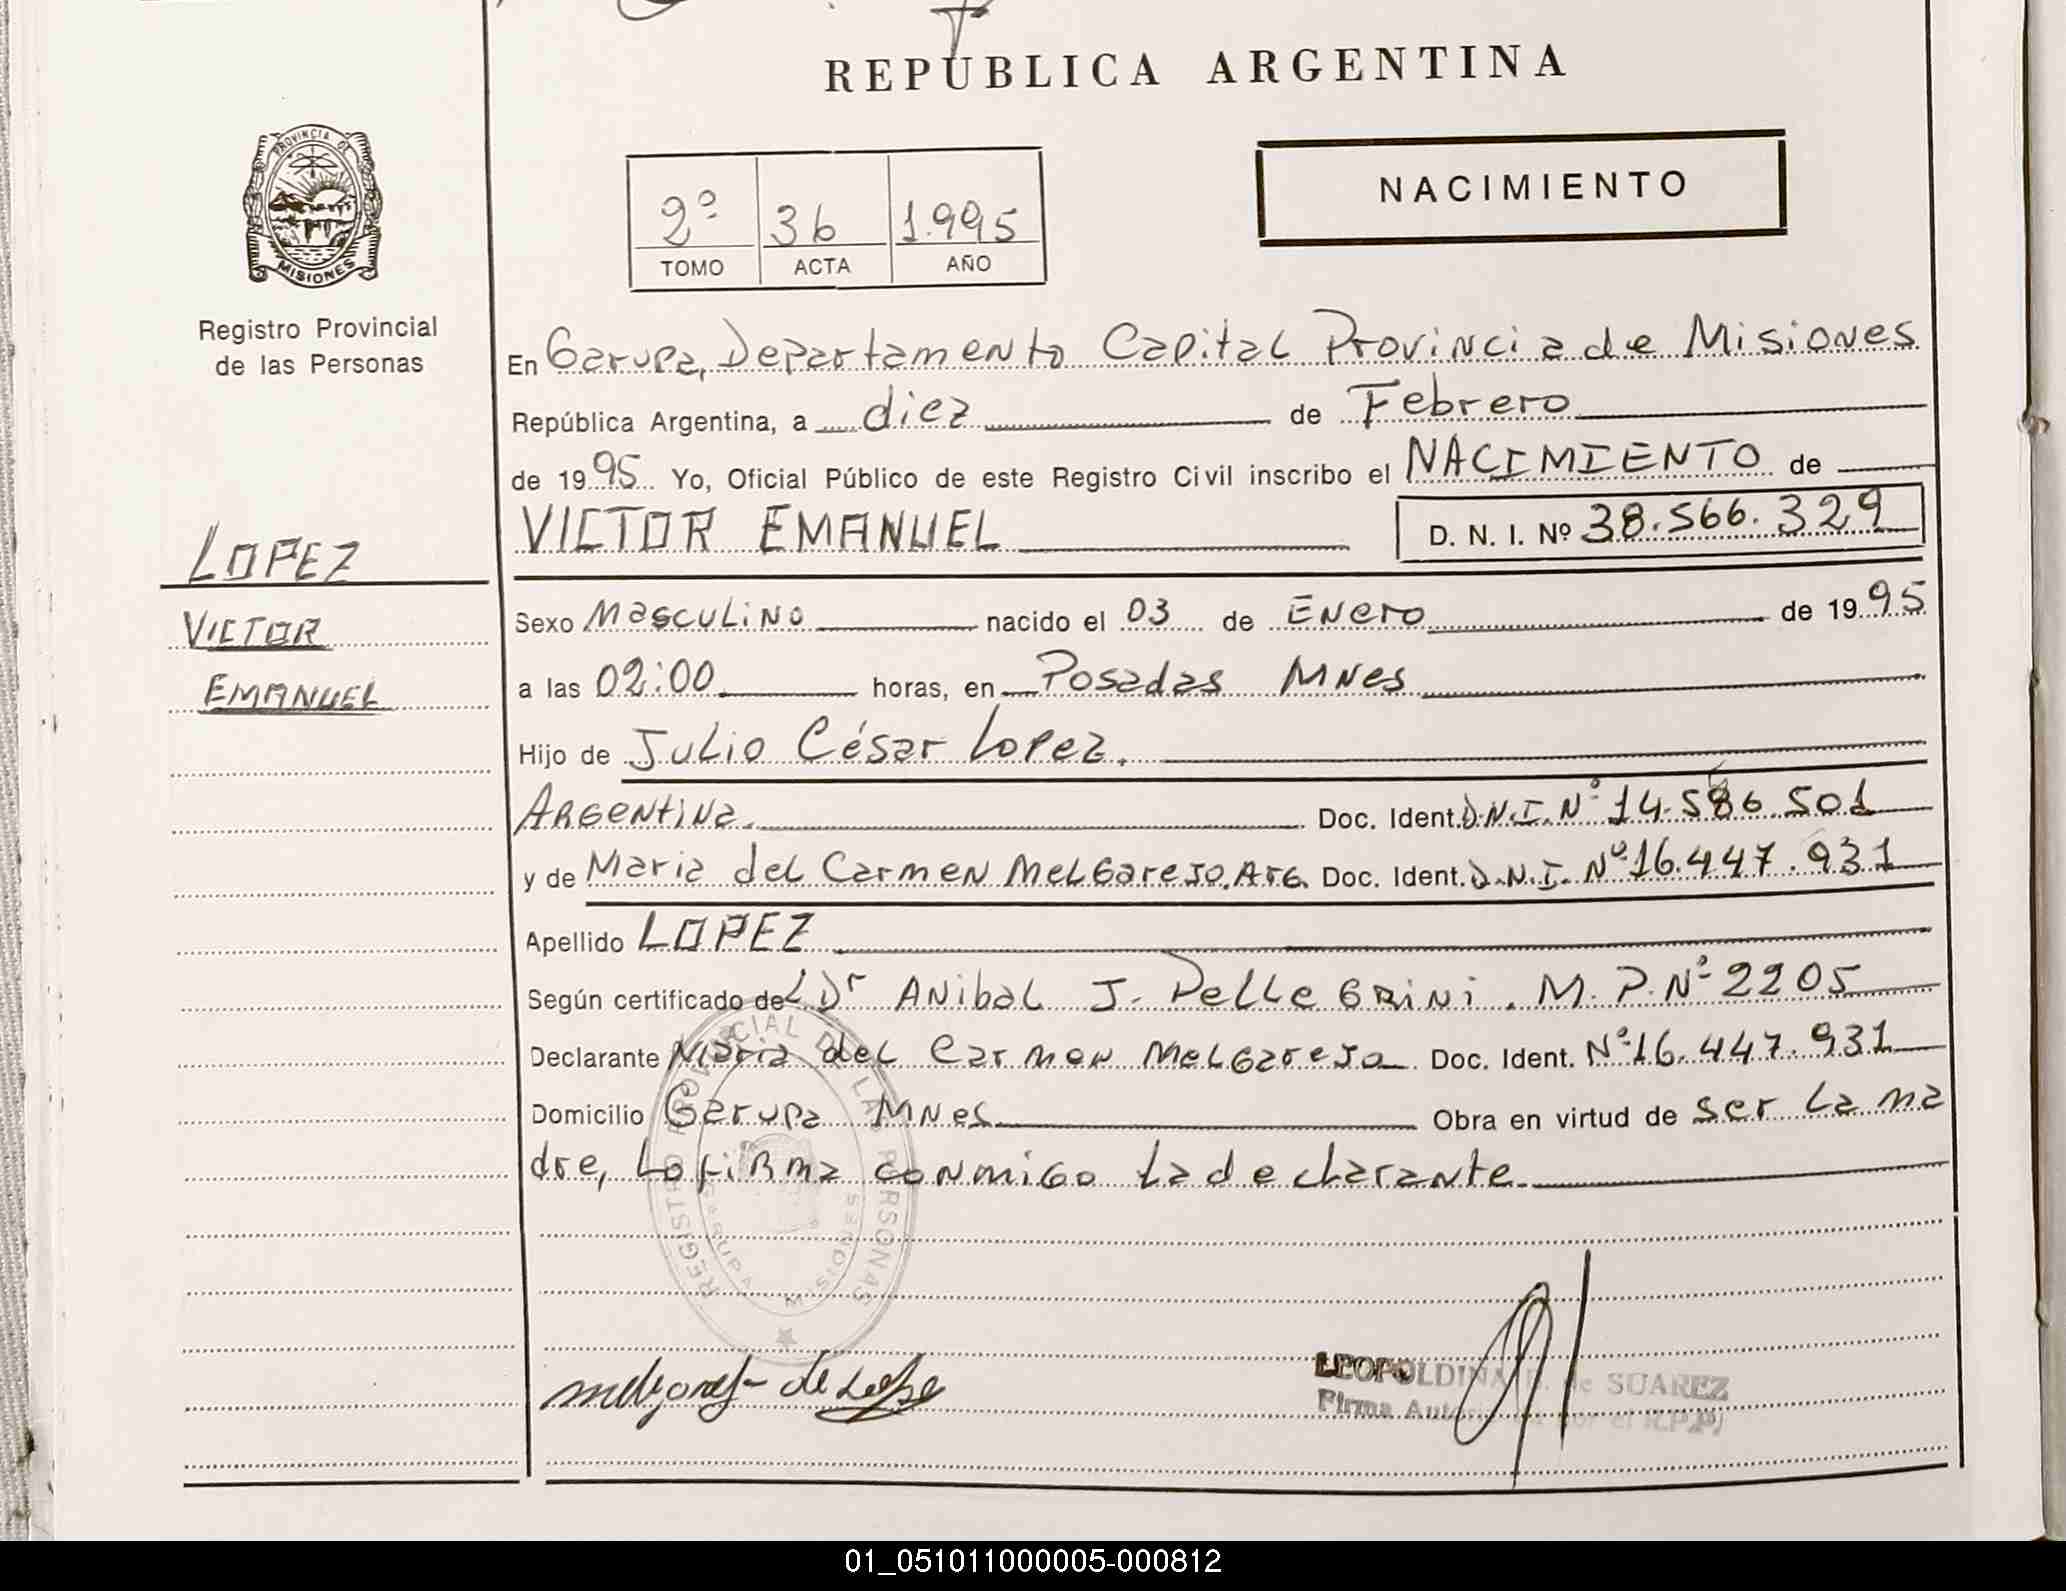 REPUBLICA ARGENTINA
PROVINCIA DE
MISIONES
Registro Provincial
de las Personas
2º 36 1.995
TOMO ACTA AÑO
NACIMIENTO
En Garupa, Departamento Capital Provincia de Misiones
República Argentina, a diez de Febrero
de 1995 Yo, Oficial Público de este Registro Civil inscribo el NACIMIENTO de
VICTOR EMANUEL D. N. I. Nº 38.566.329
LOPEZ
VICTOR
EMANUEL
Sexo Masculino nacido el 03 de Enero de 1995
a las 02:00 horas, en Posadas Mnes
Hijo de Julio César Lopez.
Argentina. Doc. Ident. D.N.I. Nº 14.586.501
y de Maria del Carmen Melgarejo. Arg. Doc. Ident. D.N.I. Nº 16.447.931
Apellido LOPEZ
Según certificado del Dr Anibal J. Pellegrini. M.P. Nº 2205
Declarante Maria del Carmen Melgarejo Doc. Ident. Nº 16.447.931
Domicilio Garupa Mnes Obra en virtud de ser la ma
dre, lo firma conmigo la declarante.
REGISTRO PROVINCIAL DE LAS PERSONAS
GARUPA MISIONES
de Lopez
LEOPOLDINA de SUAREZ
Firma Autorizada por el R.P.P.
01_051011000005-000812